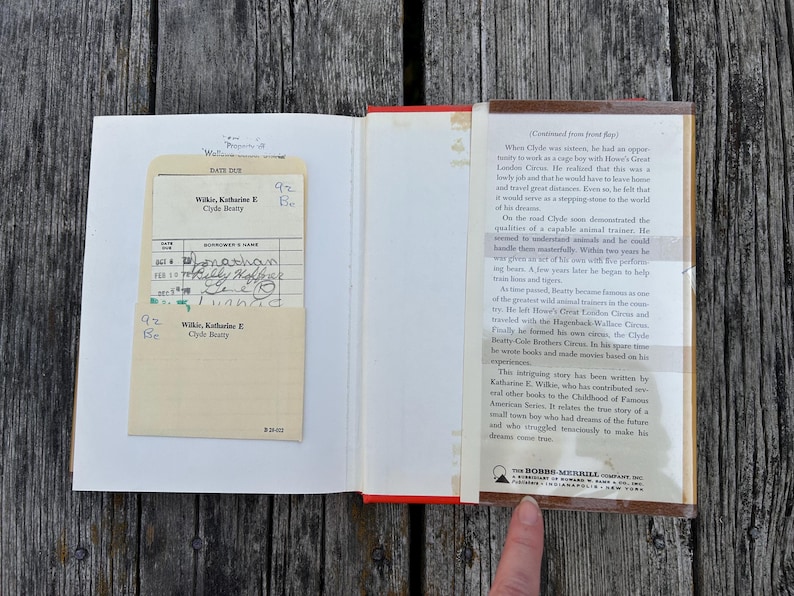 Property of
DATE DUE
92
Be
Wilkie, Katharine E
Clyde Beatty
DATE DUE
BORROWER'S NAME
Jonathan
FEB 10 Billy
DEC 5 Gene D
92
Be
Wilkie, Katharine E
Clyde Beatty
B 28-022
(Continued from front flap)
When Clyde was sixteen, he had an oppor-
tunity to work as a cage boy with Howe's Great
London Circus. He realized that this was a
lowly job and that he would have to leave home
and travel great distances. Even so, he felt that
it would serve as a stepping-stone to the world
of his dreams.
On the road Clyde soon demonstrated the
qualities of a capable animal trainer. He
seemed to understand animals and he could
handle them masterfully. Within two years he
was given an act of his own with five perform-
ing bears. A few years later he began to help
train lions and tigers.
As time passed, Beatty became famous as one
of the greatest wild animal trainers in the coun-
try. He left Howe's Great London Circus and
traveled with the Hagenback-Wallace Circus.
Finally he formed his own circus, the Clyde
Beatty-Cole Brothers Circus. In his spare time
he wrote books and made movies based on his
experiences.
This intriguing story has been written by
Katharine E. Wilkie, who has contributed sev-
eral other books to the Childhood of Famous
American Series. It relates the true story of a
small town boy who had dreams of the future
and who struggled tenaciously to make his
dreams come true.
THE BOBBS-MERRILL COMPANY, INC.
A SUBSIDIARY OF HOWARD W. SAMS & CO., INC.
Publishers • INDIANAPOLIS • NEW YORK